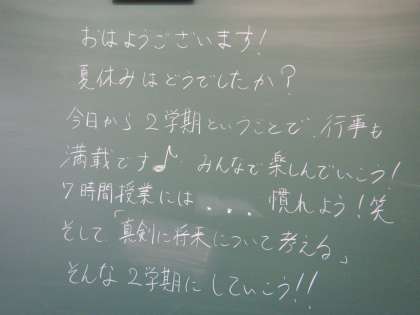 おはようございます！
夏休みはどうでしたか？
今日から２学期ということで、行事も
満載です♪ みんなで楽しんでいこう！
７時間授業には、、、慣れよう！笑
そして「真剣に将来について考える」
そんな２学期にしていこう！！